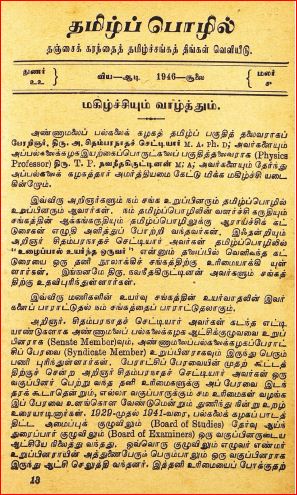 தமிழ்ப் பொழில்
தஞ்சைக் கரந்தைத் தமிழ்ச்சங்கத் திங்கள் வெளியீடு.
துணர்
௨௨
விய—ஆடி 1946—சூலை
மலர்
௪
மகிழ்ச்சியும் வாழ்த்தும்.
அண்ணாமலைப் பல்கலைக் கழகத் தமிழ்ப் பகுதித் தலைவராகப்
பேரறிஞர், திரு. அ. சிதம்பரநாதச் செட்டியார் M. A. Ph. D; அவர்களையும்
அப்பல்கலைக்கழகஇயற்கைப்பொருட்கலைப் பகுதித்தலைவராக (Physics
Professor) திரு. T. P. நவநீதகிருட்டினன் M. A; அவர்களையும் தேர்ந்து
அப்பல்கலைக் கழகத்தார் அமர்த்தியமை கேட்டு மிக்க மகிழ்ச்சி யடை
கின்றோம்.
இவ்விரு அறிஞர்களும் நம் சங்க உறுப்பினரும் தமிழ்ப்பொழில்
உறுப்பினரும் ஆவார்கள். நம் தமிழ்ப்பொழிலின் வளர்ச்சி கருதியும்
சங்கத்தின் ஆக்கங்கருதியும் தமிழ்ப்பொழிலுக்கு ஆராய்ச்சிக் கட்
டுரைகள் எழுதி அளித்துப் போற்றி வந்தவர்கள். இஃதன்றியும்
அறிஞர் சிதம்பரநாதச் செட்டியார் அவர்கள் தமிழ்ப்பொழிலில்
"உழைப்பால் உயர்ந்த ஒருவர்" என்னும் தலைப்பில் வெளிவந்த கட்
டுரையை ஒரு தனி நூலாக்கிச் சங்கத்திற்கு உரிமையாக்கி யுள்
ளார்கள். இங்ஙனமே திரு. நவநீதகிருட்டினன் அவர்களும் சங்கத்
திற்கு உதவிபுரிந்துள்ளார்கள்.
இவ்விரு மணிகளின் உயர்வு சங்கத்தின் உயர்வாதலின் இவர்
களைப் பாராட்டுதல் நம் சங்கத்தைப் பாராட்டுதலாகும்.
அறிஞர். சிதம்பரநாதச் செட்டியார் அவர்கள் கடந்த எட்டி
யாண்டுகளாக அண்ணாமலைப் பல்கலைக்கழக ஆட்சிக்குழுவில் உறுப்
பினராக (Senate Member)வும், அண்ணாமலைப் பல்கலைக்கழகப்பேராட்
சிப் பேரவை (Syndicate Member) உறுப்பினராகவும் இருந்து பெரும்
பணி புரிந்துள்ளார்கள். பேராட்சிப் பேரவையின் முதற் கூட்டத்
திற்குச் சென்ற அறிஞர் சிதம்பரநாதச் செட்டியார் அவர்கள் ஒரு
வகுப்பினர் பெற்று வந்த தனி உரிமைகளுக்கு அப் பேரவை இடந்
தரக் கூடாதென்றும், எல்லா வகுப்பாருக்கும் சம உரிமைகள் வழங்க
இப் பேரவை உளங்கொள வேண்டுமென்றும் துணிந்து நின்று உற்ற
உரையாடினார்கள். 1929-முதல் 1941-வரை, பல்கலைக் கழகப்பாடத்
திட்ட அமைப்புக் குழுவிலும் (Board of Studies) தேர்வு ஆய்ந்
துரைப்பார் குழுவிலும் (Board of Examiners) ஒரு வகுப்பினருடைய
ஆட்சியே நிலைத்து வந்தது. ஒவ்வொரு குழுவிலும் எழுவர் எண்மர்
உறுப்பினராயின் அத்துணைபேரும் பெரும்பாலும் ஒரு வகுப்பினராக
இருந்து ஆட்சி செலுத்தி வந்தனர். இத்தனி உரிமையைப் போக்குதற்
13